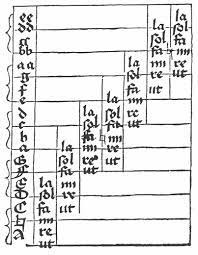 ee
bb
aa
g
f
e
d
c
b
a
G
F
E
D
C
A
la
sol
fa
mi
re
ut
la
sol
fa
mi
re
ut
la
sol
fa
mi
re
ut
la
sol
fa
mi
re
ut
la
sol
fa
mi
re
ut
la
sol
fa
mi
re
ut
la
sol
fa
mi
re
ut